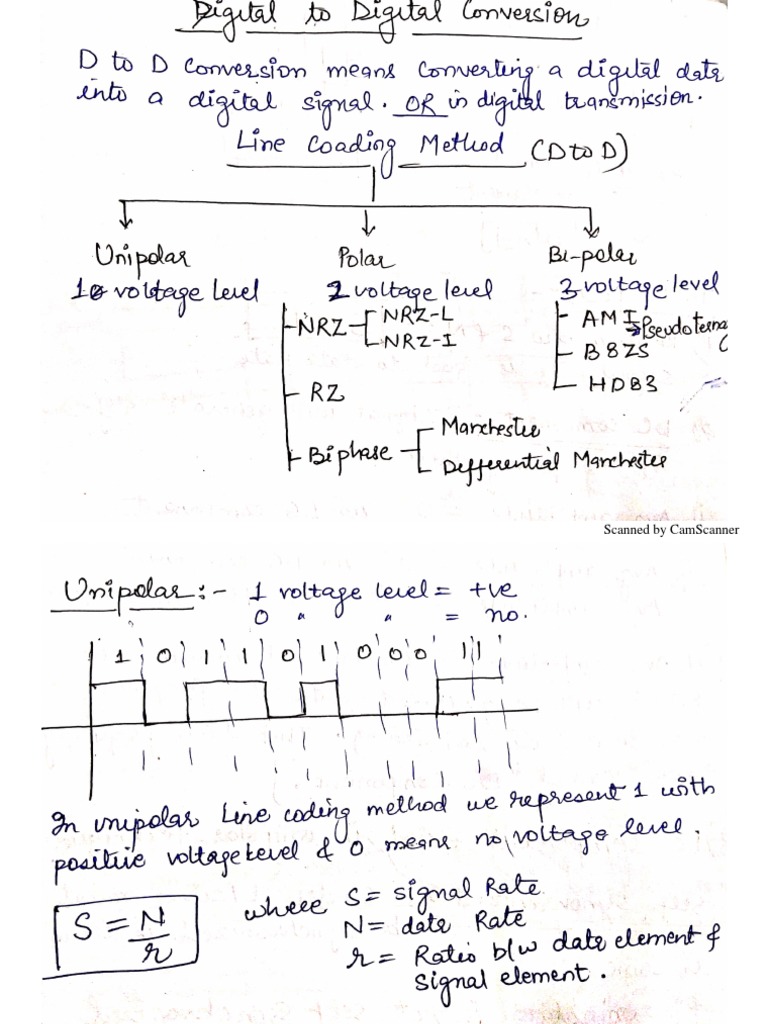 Digital to Digital Conversion
D to D conversion means converting a digital data
into a digital signal. OR in digital transmission.
Line Coading Method (D to D)
Unipolar Polar Bi-polar
1 voltage level 2 voltage level 3 voltage level
NRZ NRZ-L
NRZ-I
RZ
Biphase Manchester
Defferential Manchester
AMI → Pseudoterna
B8ZS
HDB3
Scanned by CamScanner
Unipolar :- 1 voltage level = +ve
0 " " = no.
1 0 1 1 0 1 0 0 0 1 1
In unipolar Line coding method we represent 1 with
positive voltage level & 0 means no voltage level.
S = N/r where S = signal Rate
N = data Rate
r = Ratio b/w data element &
signal element.